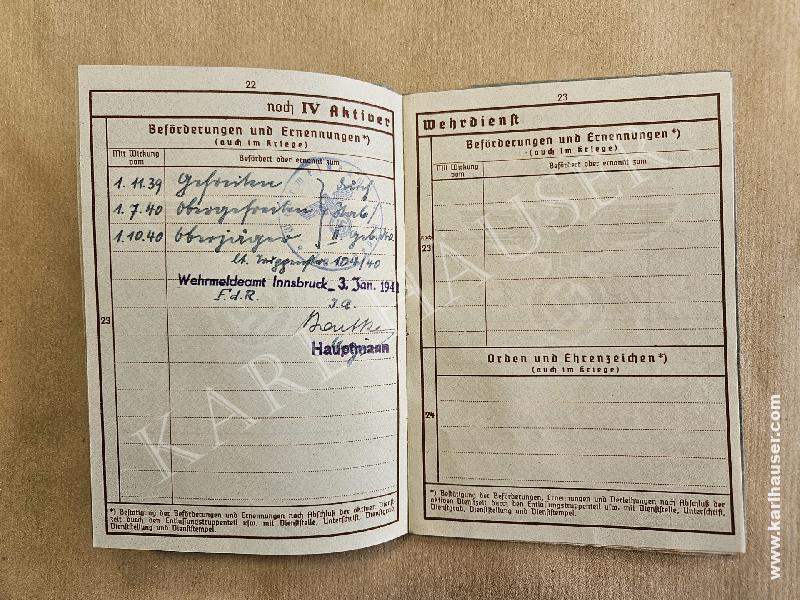 22
noch IV Aktiver
Beförderungen und Ernennungen*)
(auch im Kriege)
Mit Wirkung vom
Befördert oder ernannt zum
1.11.39 Gefreiten durch
1.7.40 Obergefreiten Stab/
1.10.40 Oberjäger II.
lt. 104/40
Wehrmeldeamt Innsbruck 3. Jan. 1941
F.d.R. I.A.
Hauptmann
23
*) Bestätigung der Beförderungen und Ernennungen nach Abschluß der aktiven Dienst-
zeit durch den Entlassungstruppenteil usw. mit Dienststelle, Unterschrift, Dienstgrad,
Dienststellung und Dienststempel.
23
Wehrdienst
Beförderungen und Ernennungen*)
(auch im Kriege)
Mit Wirkung vom
Befördert oder ernannt zum
noch
23
Orden und Ehrenzeichen*)
(auch im Kriege)
24
*) Bestätigung der Beförderungen, Ernennungen und Verleihungen nach Abschluß der
aktiven Dienstzeit durch den Entlassungstruppenteil usw. mit Dienststelle, Unterschrift,
Dienstgrad, Dienststellung und Dienststempel.
KARL HAUSER
www.karlhauser.com